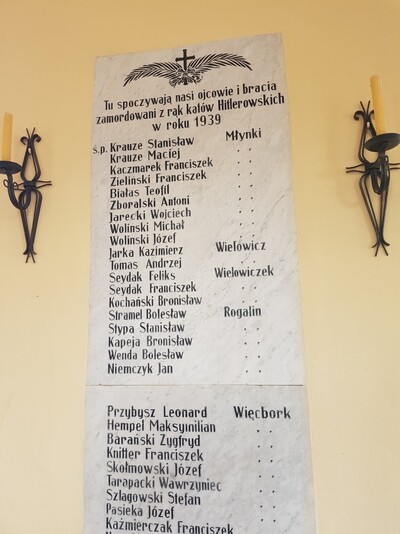 Tu spoczywają nasi ojcowie i bracia
zamordowani z rąk katów Hitlerowskich
w roku 1939
ś.p. Krauze Stanisław Młynki
Krauze Maciej . .
Kaczmarek Franciszek . .
Zieliński Franciszek . .
Białas Teofil . .
Zboralski Antoni . .
Jarecki Wojciech . .
Woliński Michał . .
Woliński Józef . .
Jarka Kazimierz Wielowicz
Tomas Andrzej . .
Seydak Feliks Wielowiczek
Seydak Franciszek . .
Kochański Bronisław . .
Stramel Bolesław Rogalin
Stypa Stanisław . .
Kapeja Bronisław . .
Wenda Bolesław . .
Niemczyk Jan . .
Przybysz Leonard Więcbork
Hempel Maksymilian . .
Barański Zygfryd . .
Knitter Franciszek . .
Skołmowski Józef . .
Tarapacki Wawrzyniec . .
Szlagowski Stefan . .
Pasieka Józef . .
Kaźmierczak Franciszek . .